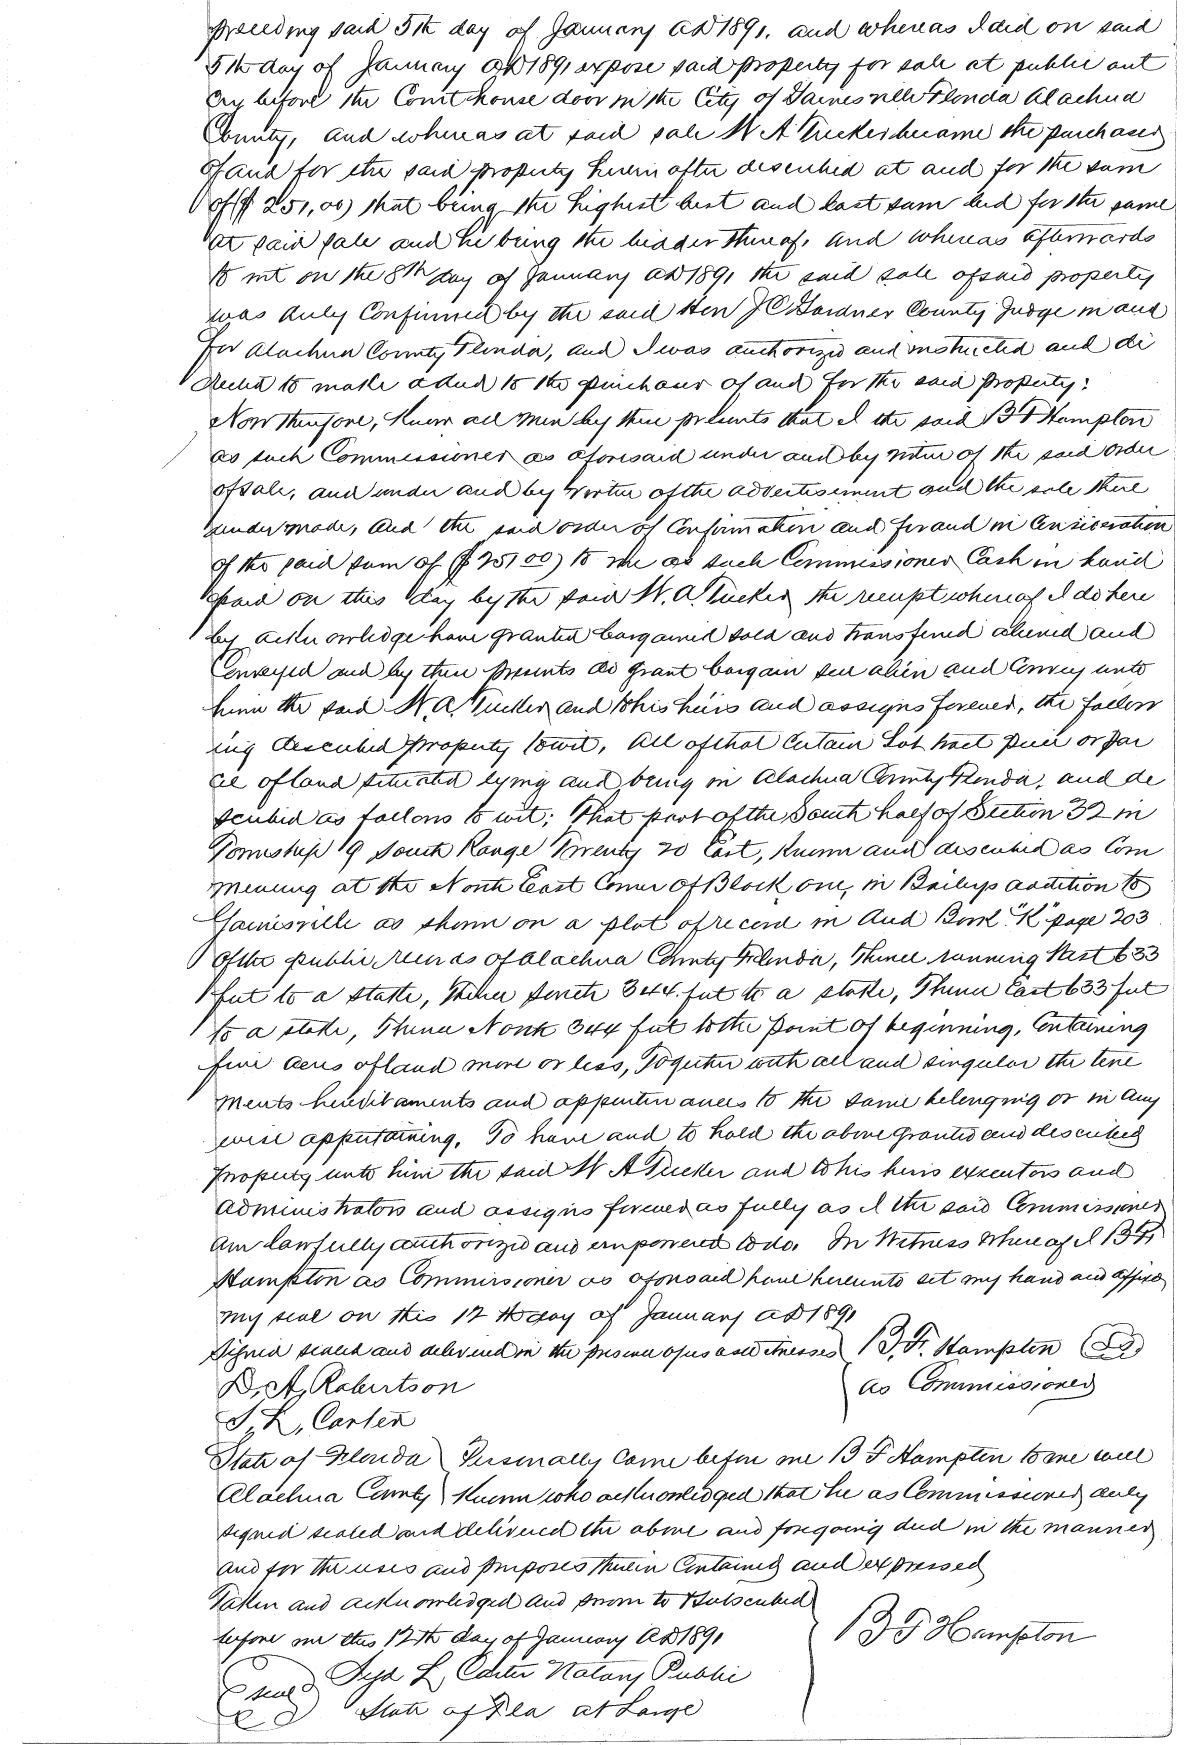 preceeding said 5th day of January AD 1891. and whereas I did on said
5th day of January AD 1891 expose said property for sale at public out
cry before the Court house door in the City of Gainesville Florida Alachua
County, and whereas at said sale W A Tucker became the purchaser
of and for the said property herein after described at and for the sum
of ($251,00) that being the highest best and last sum bid for the same
at said sale and he being the bidder thereof, and whereas afterwards
to wit on the 8th day of January AD 1891 the said sale of said property
was duly Confirmed by the said Hon J C Gardner County Judge in and
for Alachua County Florida, and I was authorized and instructed and di
rected to make a deed to the purchaser of and for the said property:
Now therefore, Know all men by these presents that I the said B F Hampton
as such Commissioner as aforesaid under and by virtue of the said order
of sale, and under and by virtue of the advertisement and the sale there
under made, and the said order of Confirmation and for and in Consideration
of the said sum of ($251 00) to me as such Commissioner Cash in hand
paid on this day by the said W. A. Tucker the receipt whereof I do here
by acknowledge have granted bargained sold and transferred aliened and
Conveyed and by these presents do grant bargain sell alien and Convey unto
him the said W. A. Tucker and to his heirs and assigns forever, the follow
ing described property to wit, All of that Certain Lot tract piece or par
cel of land situated lying and being in Alachua County Florida, and de
scribed as follows to wit; That part of the South half of Section 32 in
Township 9 South Range Twenty 20 East, Known and described as Com
mencing at the North East Corner of Block one, in Baileys addition to
Gainesville as shown on a plot of record in Deed Book "K" page 203
of the public records of Alachua County Florida, Thence running West 633
feet to a stake, Thence South 344 feet to a stake, Thence East 633 feet
to a stake, Thence North 344 feet to the point of beginning, Containing
five acres of land more or less, Together with all and singular the tene
ments hereditaments and appurtenances to the same belonging or in any
wise appertaining, To have and to hold the above granted and described
property unto him the said W A Tucker and to his heirs executors and
administrators and assigns forever as fully as I the said Commissioner
am lawfully authorized and empowered to do. In Witness Whereof I B F,
Hampton as Commissioner as aforesaid have hereunto set my hand and affixed
my seal on this 12th day of January AD 1891
Signed sealed and delivered in the presence of us as witnesses B. F. Hampton
D. A, Robertson as Commissioner
S, L, Carter
State of Florida Personally Came before me B F Hampton to me well
Alachua County Known who acknowledged that he as Commissioner duly
signed sealed and delivered the above and foregoing deed in the manner
and for the uses and purposes therein Contained and expressed
Taken and acknowledged and sworn to & subscribed
before me this 12th day of January AD 1891 B F Hampton
seal L Carter Notary Public
State of Fla at Large